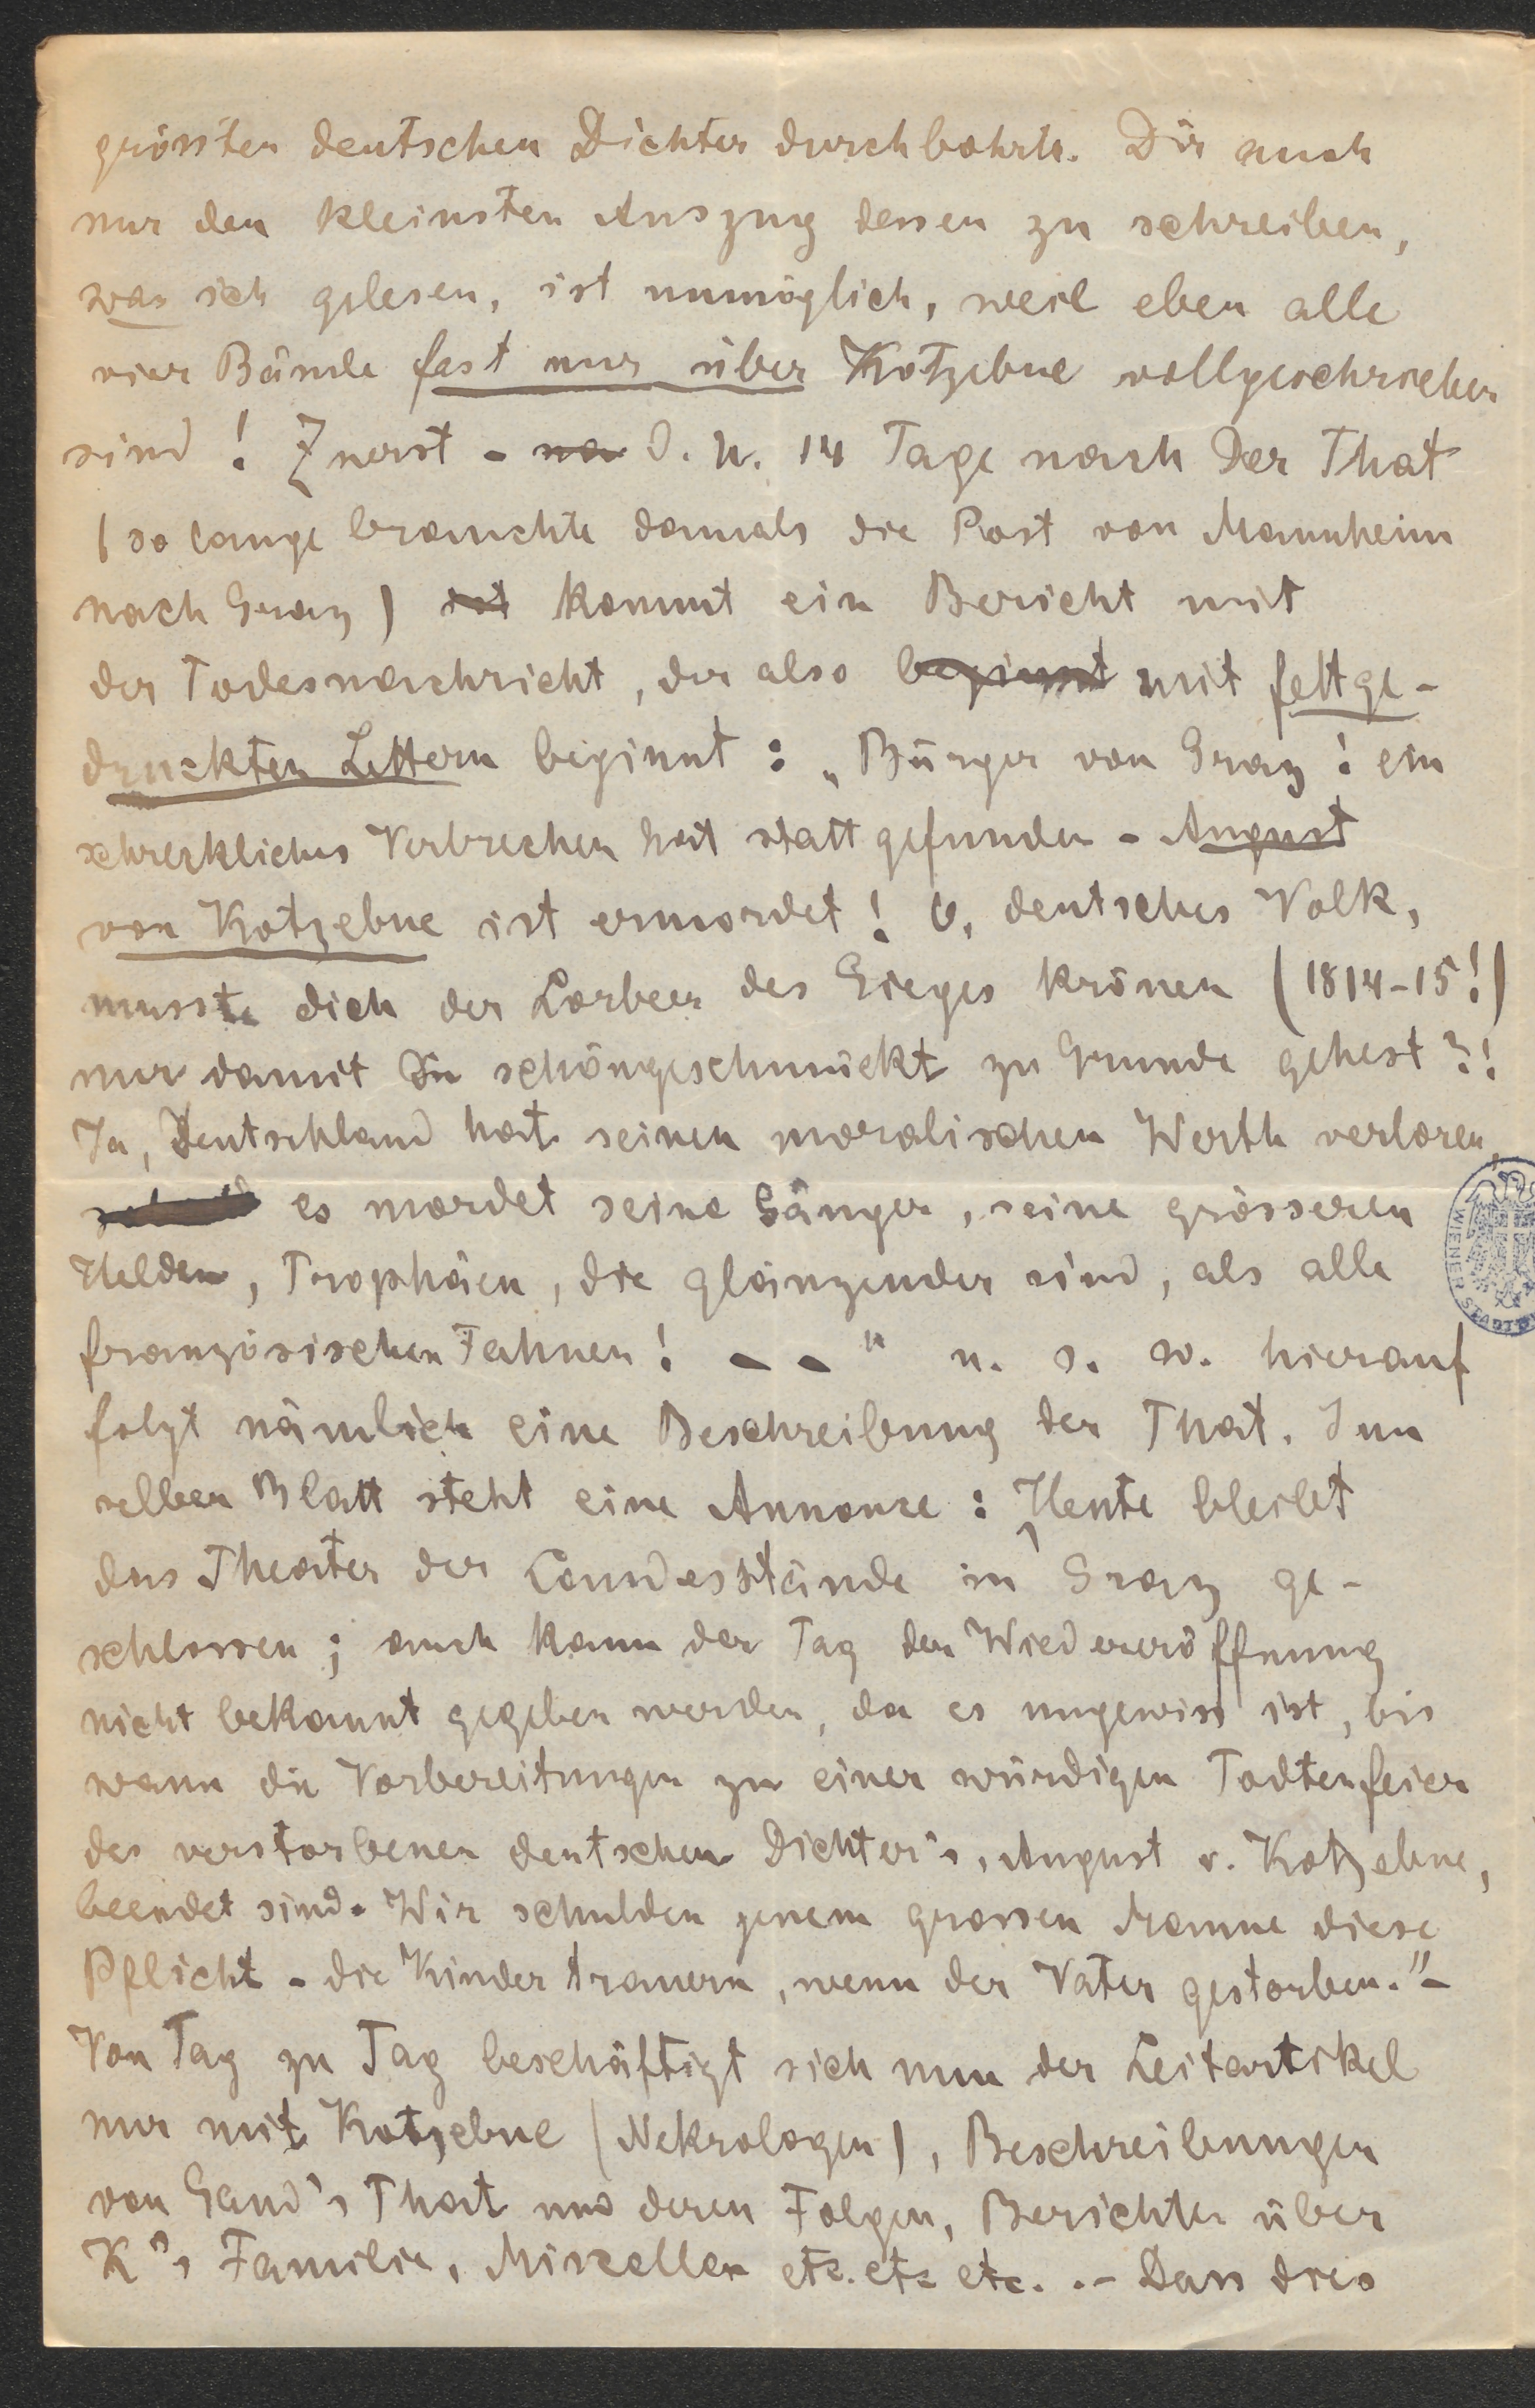 grössten deutschen Dichter durchbohrte. Dir auch
nur den kleinsten Auszug dessen zu schreiben,
was ich gelesen, ist unmöglich, weil eben alle
vier Bände fast nur über Kotzebue vollgeschrieben
sind! Zuerst - na d. h. 14 Tage nach der That
(so lange brauchte damals die Post von Mannheim
nach Graz) ist kommt ein Bericht mit
der Todesnachricht, der also beginnt mit fettge-
druckten Lettern beginnt: „Bürger von Graz! ein
schreckliches Verbrechen hat statt gefunden - August
von Kotzebue ist ermordet! O, deutsches Volk,
musste dich der Lorbeer des Sieges krönen (1814-15!)
nur damit Du schöngeschmückt zu Grunde gehest?!
Ja, Deutschland hat seinen moralischen Werth verloren,
es mordet seine Sänger, seine grösseren
Helden, Trophäen, die glänzender sind, als alle
französischen Fahnen! - - " u. s. w. hierauf
folgt nämlich eine Beschreibung der That. Im
selben Blatt steht eine Annonce: Heute bleibt
das Theater der Landesstände in Graz ge-
schlossen; auch kann der Tag der Wiedereröffnung
nicht bekannt gegeben werden, da es ungewiss ist, bis
wann die Vorbereitungen zu einer würdigen Todtenfeier
des verstorbenen deutschen Dichter's, August v. Kotzebue,
beendet sind. Wir schulden jenem grossen Manne diese
Pflicht - die Kinder trauern, wenn der Vater gestorben." -
Von Tag zu Tag beschäftigt sich nun der Leitartikel
nur mit Kotzebue (Nekrologen), Beschreibungen
von Sand's That und deren Folgen, Berichte über
K's Familie, Miscellen etc. etc etc. . - Dass dies
WIENER STADT